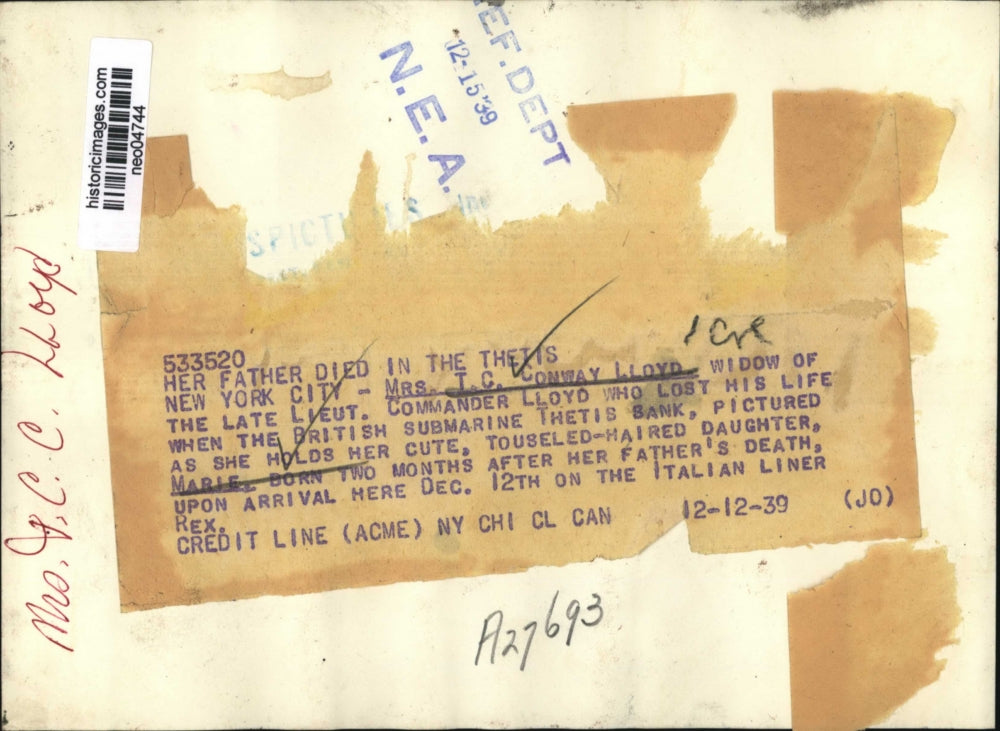 historicimages.com
neo04744
REF. DEPT
12-15'39
N.E.A.
1 Cre
533520
HER FATHER DIED IN THE THETIS
NEW YORK CITY - MRS. T.C. CONWAY LLOYD, WIDOW OF
THE LATE LIEUT. COMMANDER LLOYD WHO LOST HIS LIFE
WHEN THE BRITISH SUBMARINE THETIS SANK, PICTURED
AS SHE HOLDS HER CUTE, TOUSELED-HAIRED DAUGHTER,
MARIE, BORN TWO MONTHS AFTER HER FATHER'S DEATH,
UPON ARRIVAL HERE DEC. 12TH ON THE ITALIAN LINER
REX.
CREDIT LINE (ACME) NY CHI CL CAN 12-12-39 (JO)
A27693
Mrs. T. C. C. Lloyd